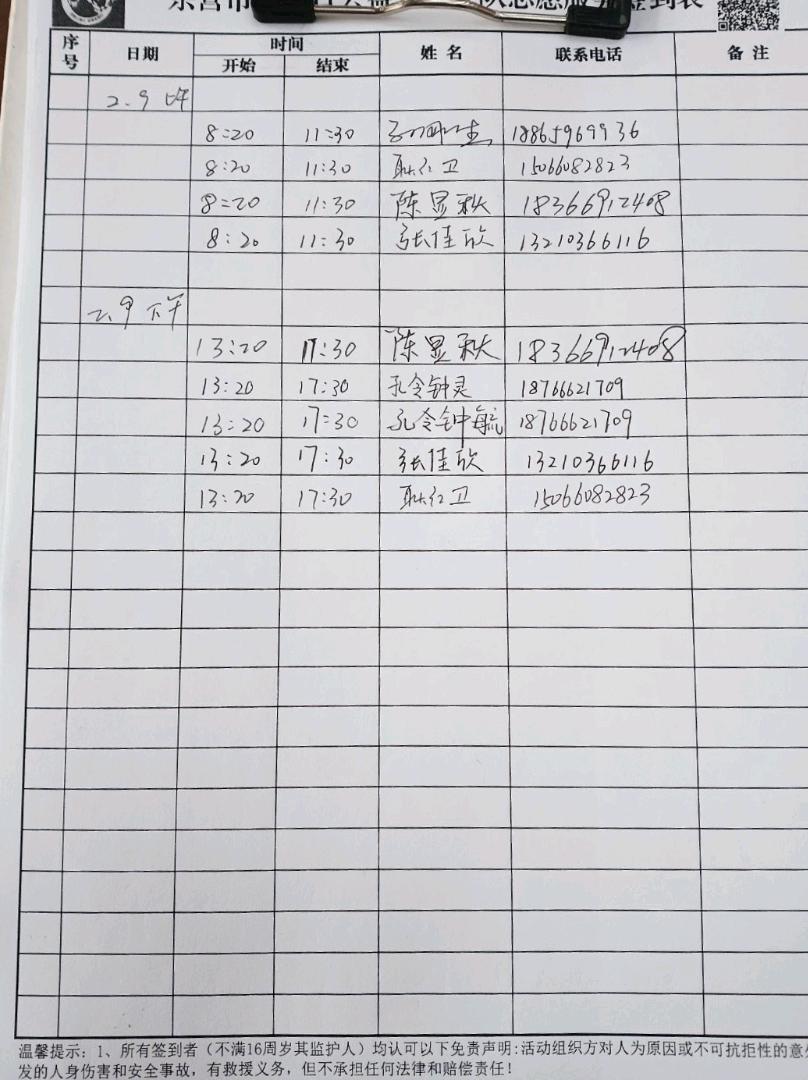 东营市 志愿服务签到表
序号 日期 时间 姓名 联系电话 备注
开始 结束
2.9 上午
8:20 11:30 18865969936
8:20 11:30 耿红卫 15066082823
8:20 11:30 陈显秋 18366912408
8:20 11:30 张佳欣 13210366116
2.9 下午
13:20 17:30 陈显秋 18366912408
13:20 17:30 孔令钟灵 18766621709
13:20 17:30 孔令钟毓 18766621709
13:20 17:30 张佳欣 13210366116
13:20 17:30 耿红卫 15066082823
温馨提示：1、所有签到者（不满16周岁其监护人）均认可以下免责声明：活动组织方对人为原因或不可抗拒性的意
发的人身伤害和安全事故，有救援义务，但不承担任何法律和赔偿责任！